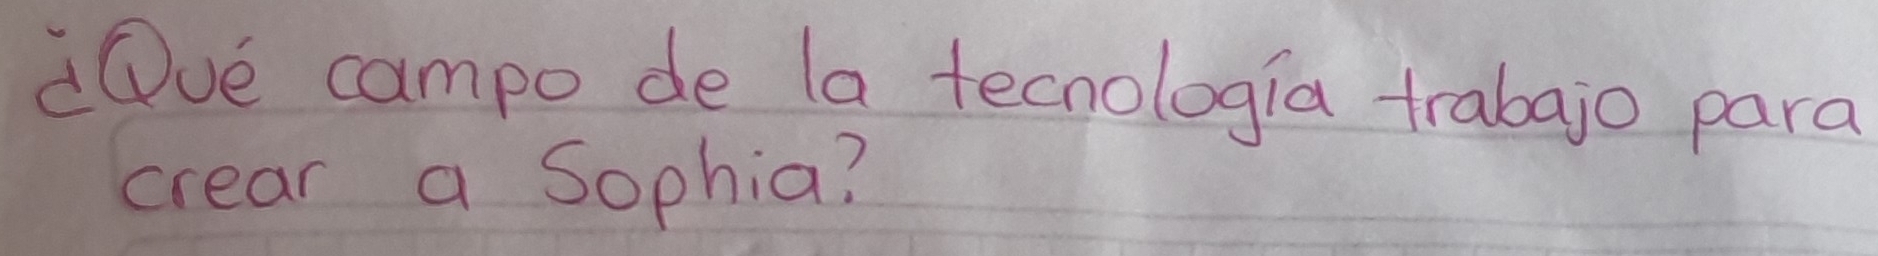 ¿Qué campo de la tecnología trabajo para
crear a Sophia?